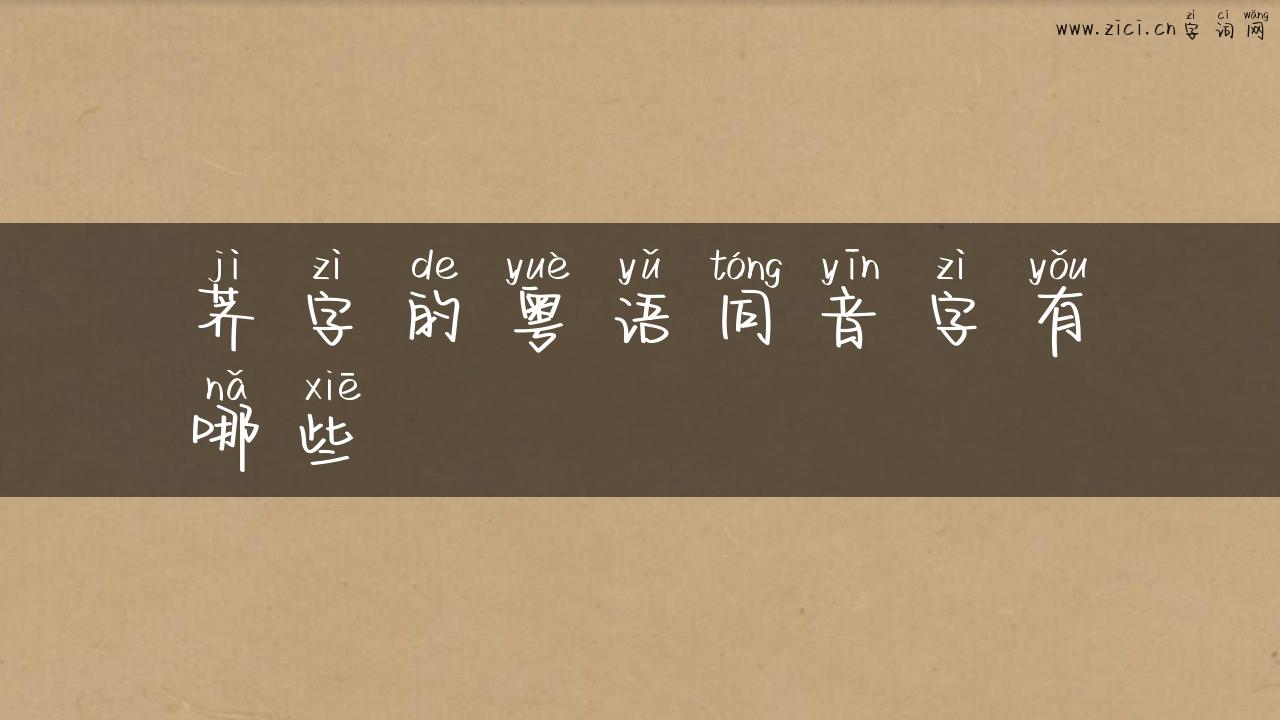 zì cí wǎng
www.zici.cn 字词网
jì zì de yuè yǔ tóng yīn zì yǒu
荠字的粤语同音字有
nǎ xiē
哪些